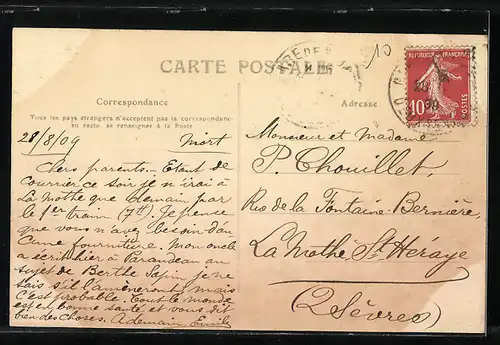 CARTE POSTALE
Correspondance
Tous les pays étrangers n'acceptent pas la correspondance
au recto, se renseigner à la Poste
Adresse
10
REPUBLIQUE FRANÇAISE
POSTES
10
28/8/09 Niort
Chers parents. Etant de
courrier ce soir je n'irai à
La Mothe que demain par
le 1er train (7h). Je pense
que vous n'avez besoin d'au
cune fourniture. Mon oncle
a écrit hier à Varandeau au
sujet de Berthe Sapin je ne
sais s'il l'amèneront, mais
c'est probable. Tout le monde
est en bonne santé et vous dit
bien des choses. A demain Emile
Monsieur et Madame
P. Chouillet,
Rue de la Fontaine-Bernière,
La Mothe St Héraye
(2 Sèvres)